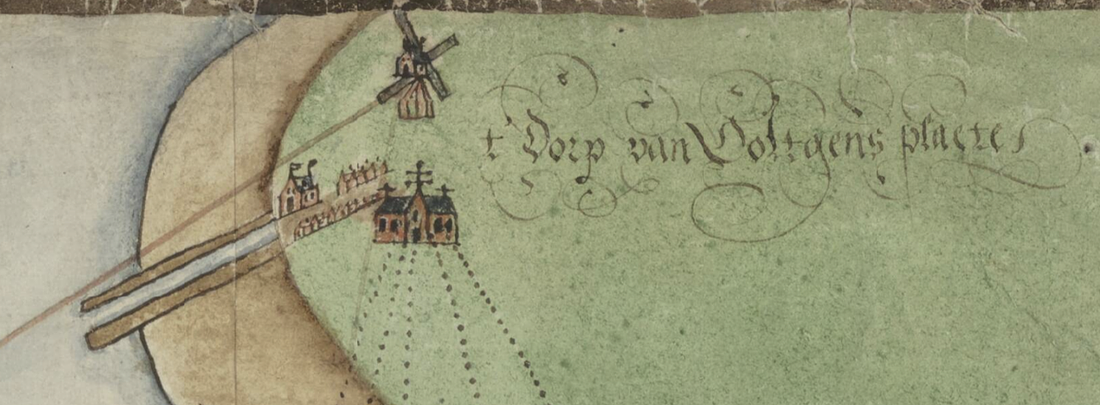 t' Dorp van Ooltgens plaete